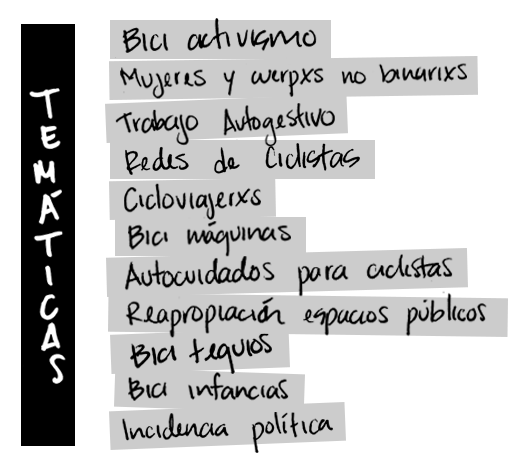 TEMÁTICAS
Bici activismo
Mujeres y cuerpxs no binarixs
Trabajo Autogestivo
Redes de Ciclistas
Cicloviajerxs
Bici máquinas
Autocuidados para ciclistas
Reapropiación espacios públicos
Bici tequios
Bici infancias
Incidencia política